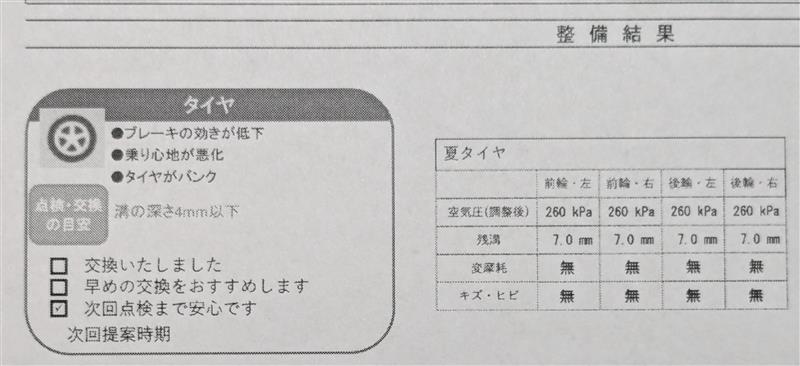 整備結果
タイヤ
●ブレーキの効きが低下
●乗り心地が悪化
●タイヤがパンク
点検・交換
の目安
溝の深さ4mm以下
☐ 交換いたしました
☐ 早めの交換をおすすめします
☑ 次回点検まで安心です
次回提案時期
夏タイヤ
前輪・左 前輪・右 後輪・左 後輪・右
空気圧(調整後) 260 kPa 260 kPa 260 kPa 260 kPa
残溝 7.0 mm 7.0 mm 7.0 mm 7.0 mm
変摩耗 無 無 無 無
キズ・ヒビ 無 無 無 無